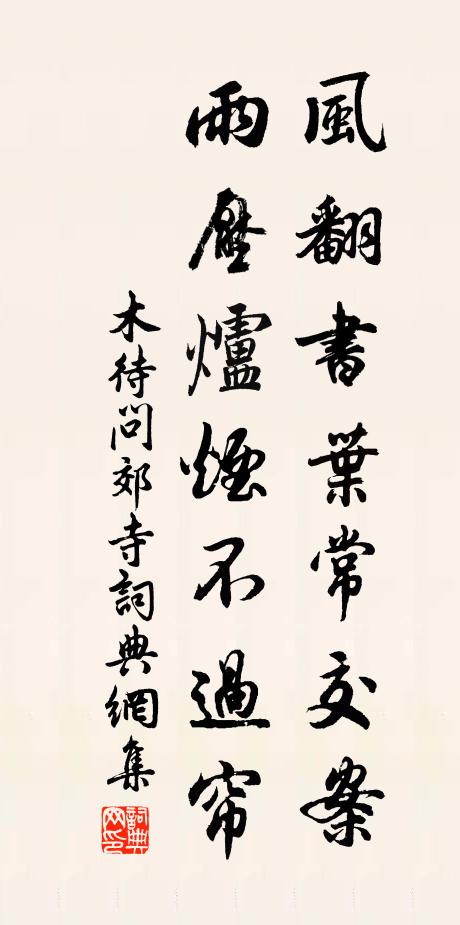 風翻書葉常交案
雨壓爐煙不過帘
木待問郊寺詞典網集
詞典網印